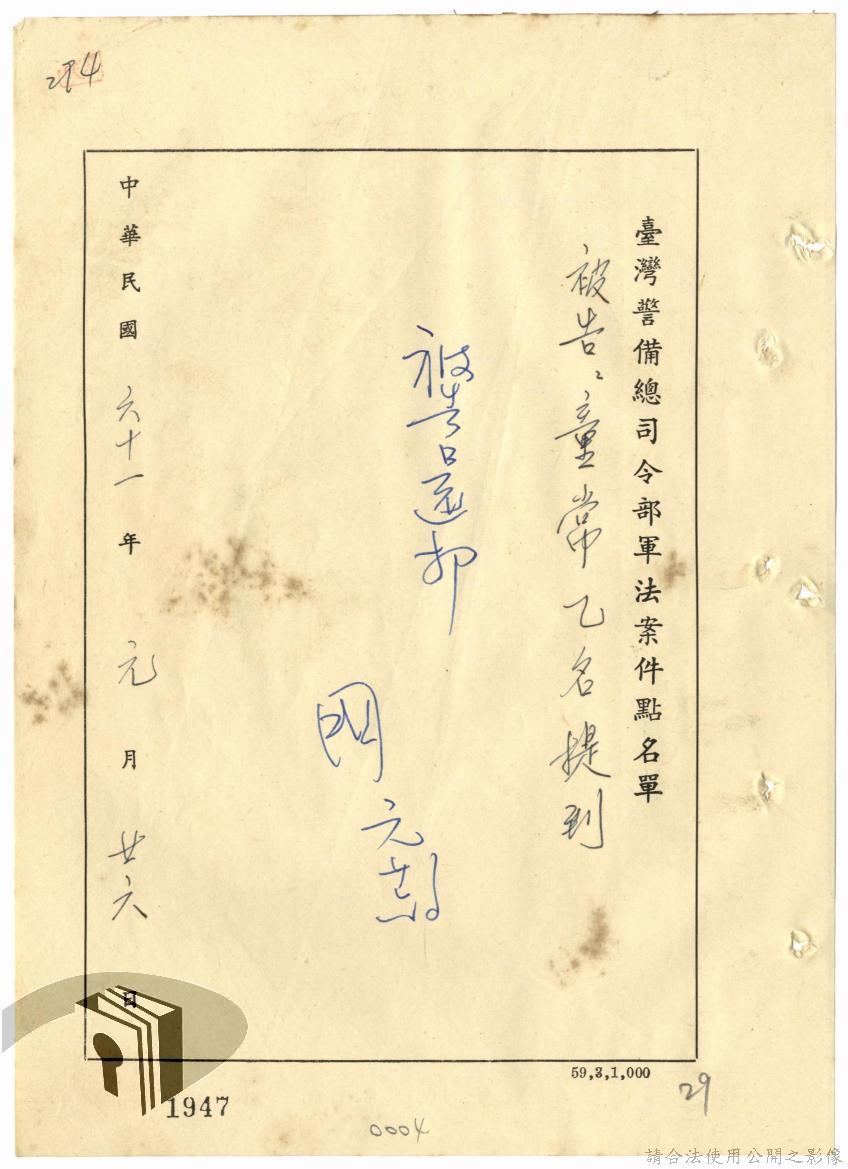 214
臺灣警備總司令部軍法案件點名單
被告:童常乙名提到
被告還押
元
中華民國 六十一 年 元 月 廿六 日
59,3,1,000
29
1947
0004
請合法使用公開之影像